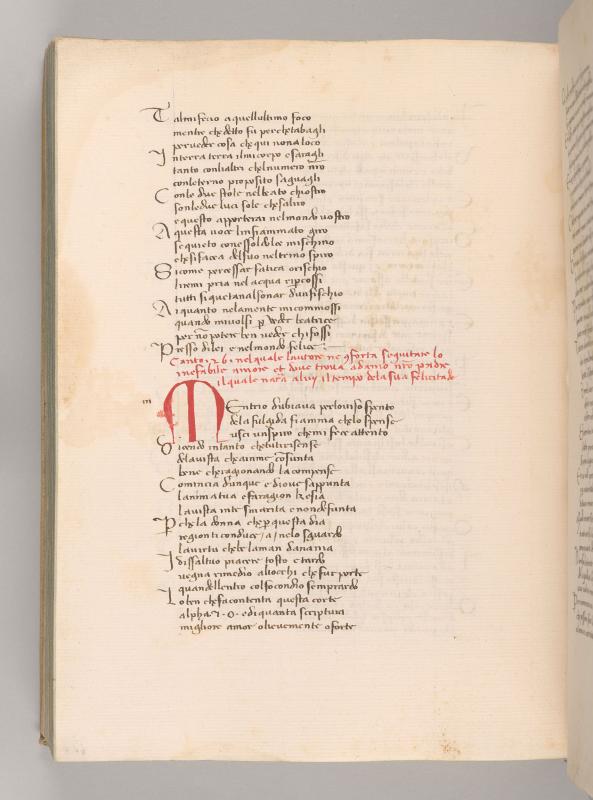 Talmi fecio a quell ultimo foco
mentre che detto fu perche tabagli
per veder cosa che qui non a loco
Interra terra il mi corpo e saragli
tanto con li altri chel numero nr̃o
con leterno proposito saguagli
Conle due stole nel beato chiostro
son le due luci sole che saliro
e questo apporterai nel mondo vostro
A questa voce linfiammato giro
se quieto con esso il dolce mischino
che si facea del suo nel trino spiro
Si come per cessar fatica o rischio
li remi pria nel acqua ripcossi
tutti si quetan al sonar dun fischio
Ai quanto ne la mente mi commossi
quando mi volsi p veder beatrice
per nõ poter ben veder chi fossi
Presso di lei e nel mondo felice
Canto .26. nel quale lautore ne 9forta seguitare lo
inefabile amore et dove trova adamo nr̃o padre
il quale narra a luy il tempo de la sua felicitade
m
MEntrio dubiava per lo viso spento
de la fulgida fiamma che lo spense
usci un spiro che mi fece attento
Dicendo intanto che tu ti risense
de la vista che ai in me cõsunta
bene che ragionando la compense
Comincia dunque e di ove sappunta
lanima tua e fa ragion che sia
la vista in te smarita e non defunta
Pche la donna che p questa dia
region ti conduce /a/ ne lo sguardo
la virtu chebe la man danania
Io dissi al suo piacere tosto e tardo
vegna rimedio a li occhi che fur porte
quandella entro col foco ondio sempr ardo
Lo ben che fa contenta questa corte
alpha 7 .O. e di quanta scriptura
mi gliore amor o lievemente o forte